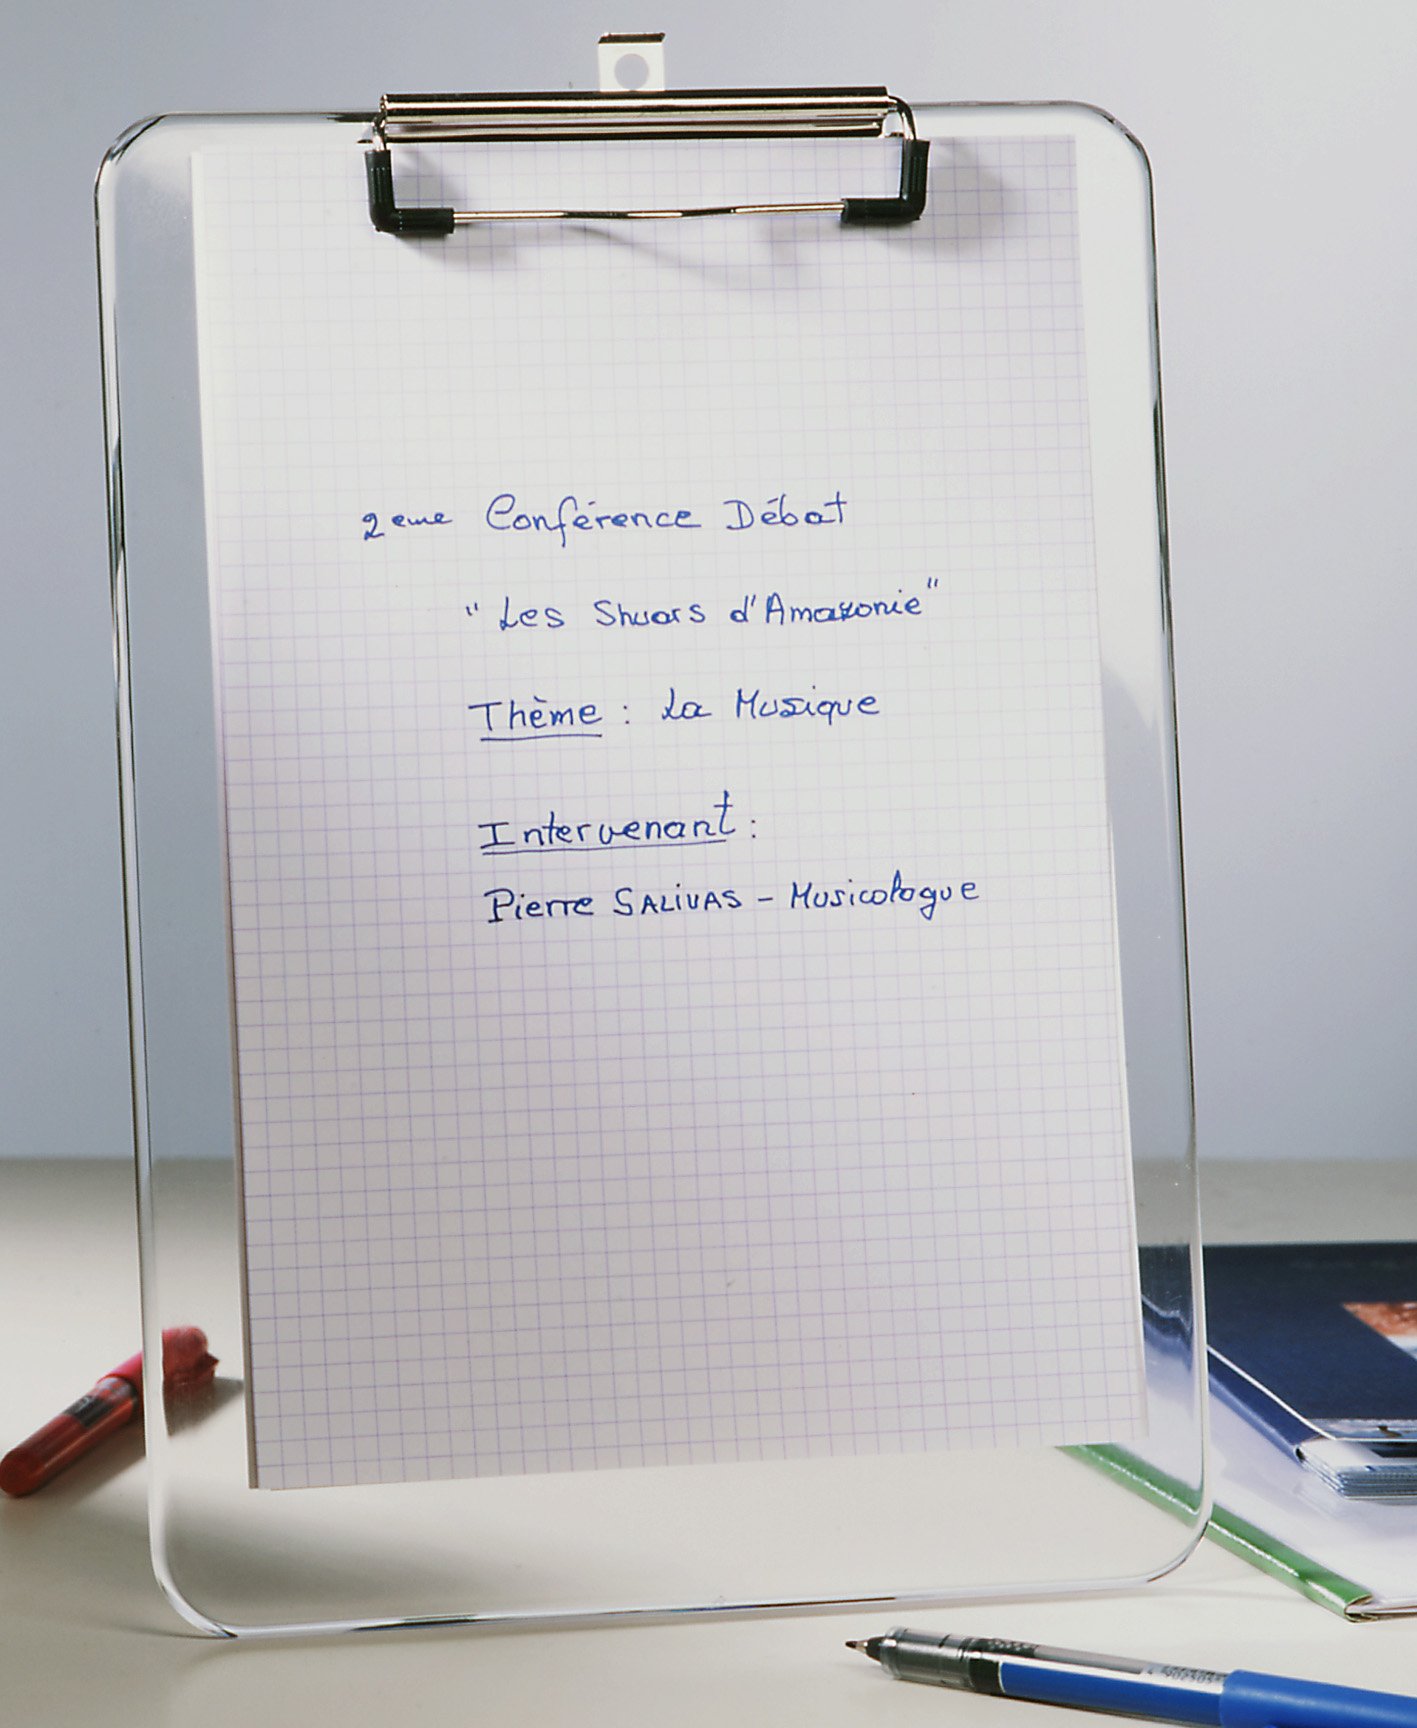 2eme Conférence Débat
"Les Shuars d'Amazonie"
Thème : La Musique
Intervenant :
Pierre SALIVAS - Musicologue